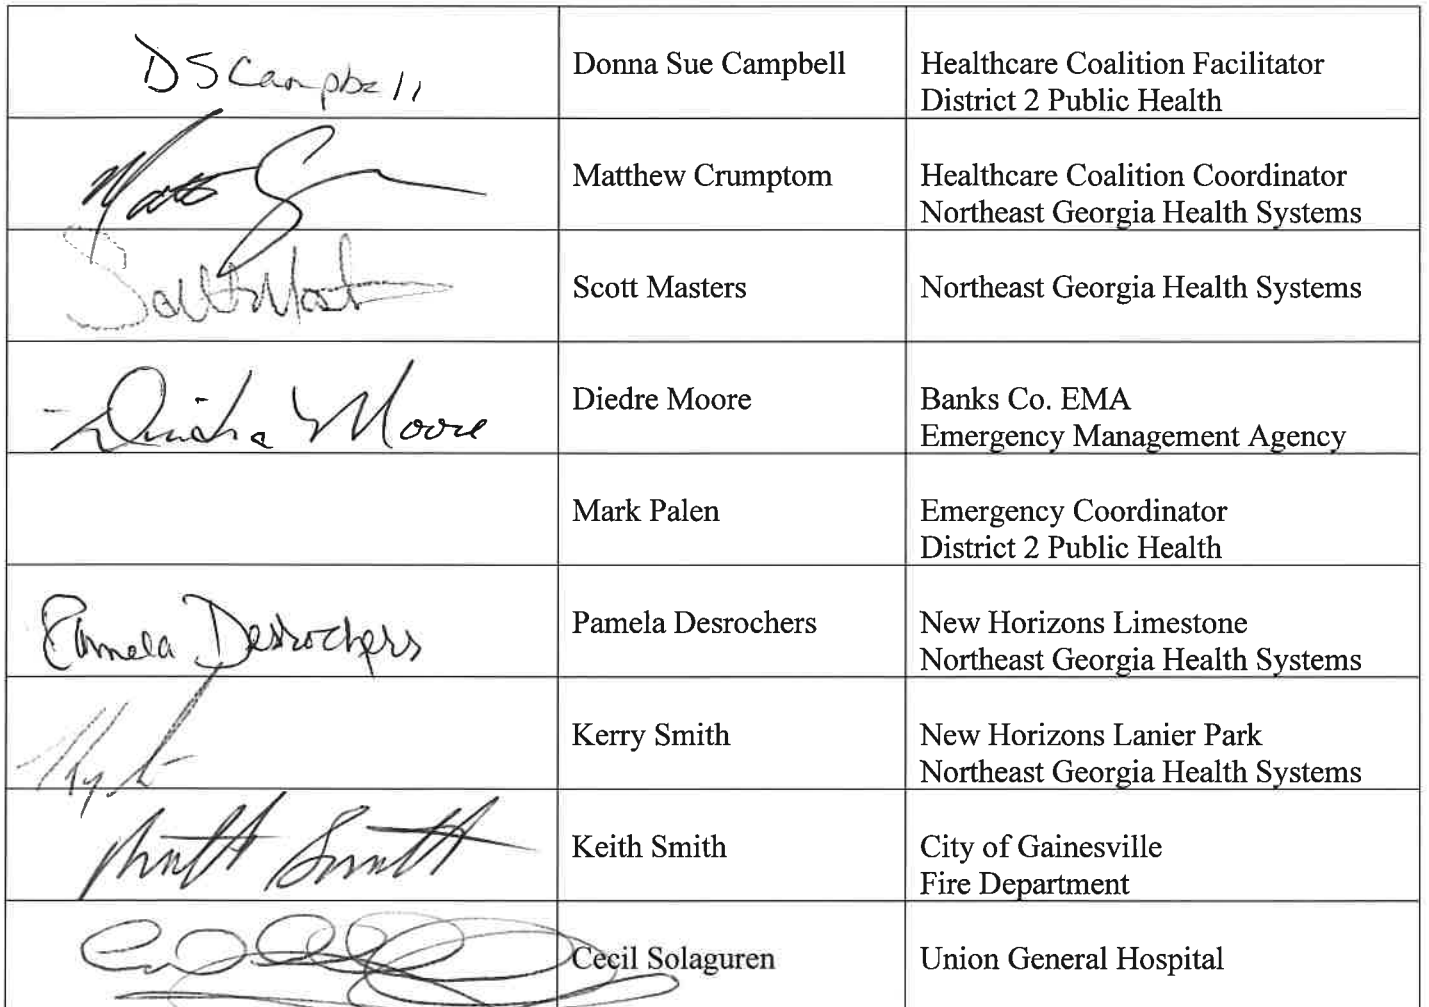 DSCampbell
Donna Sue Campbell
Healthcare Coalition Facilitator
District 2 Public Health
Matthew Crumptom
Healthcare Coalition Coordinator
Northeast Georgia Health Systems
Scott Masters
Northeast Georgia Health Systems
Diedre Moore
Diedre Moore
Banks Co. EMA
Emergency Management Agency
Mark Palen
Emergency Coordinator
District 2 Public Health
Pamela Desrochers
Pamela Desrochers
New Horizons Limestone
Northeast Georgia Health Systems
Kerry Smith
New Horizons Lanier Park
Northeast Georgia Health Systems
Keith Smith
City of Gainesville
Fire Department
Cecil Solaguren
Union General Hospital